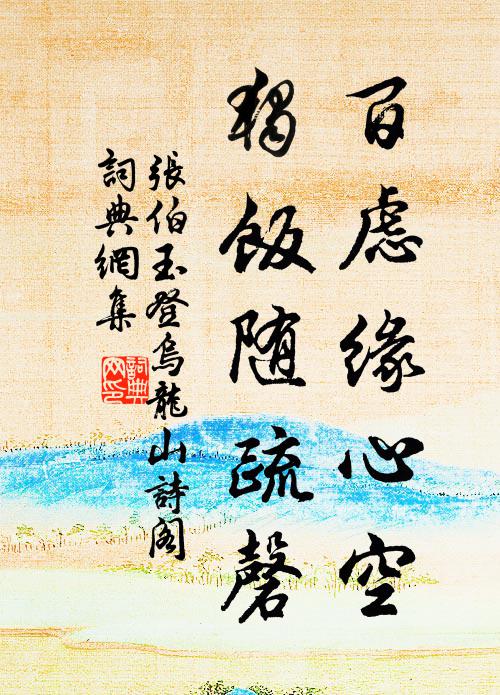 百慮緣心空
獨飯隨疏磬
張伯玉登烏龍山詩閣
詞典網集
詞典
网印